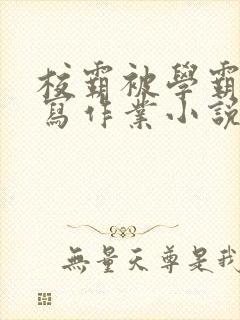 校霸被學霸
寫作業小說
無量天尊是我